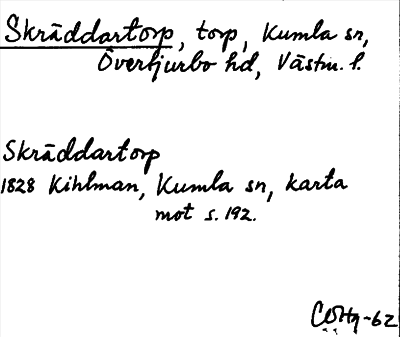 Skräddartorp, torp, Kumla sn,
Övertjurbo hd, Västm. l.
Skräddartorp
1828 Kihlman, Kumla sn, karta
mot s. 192.
-62